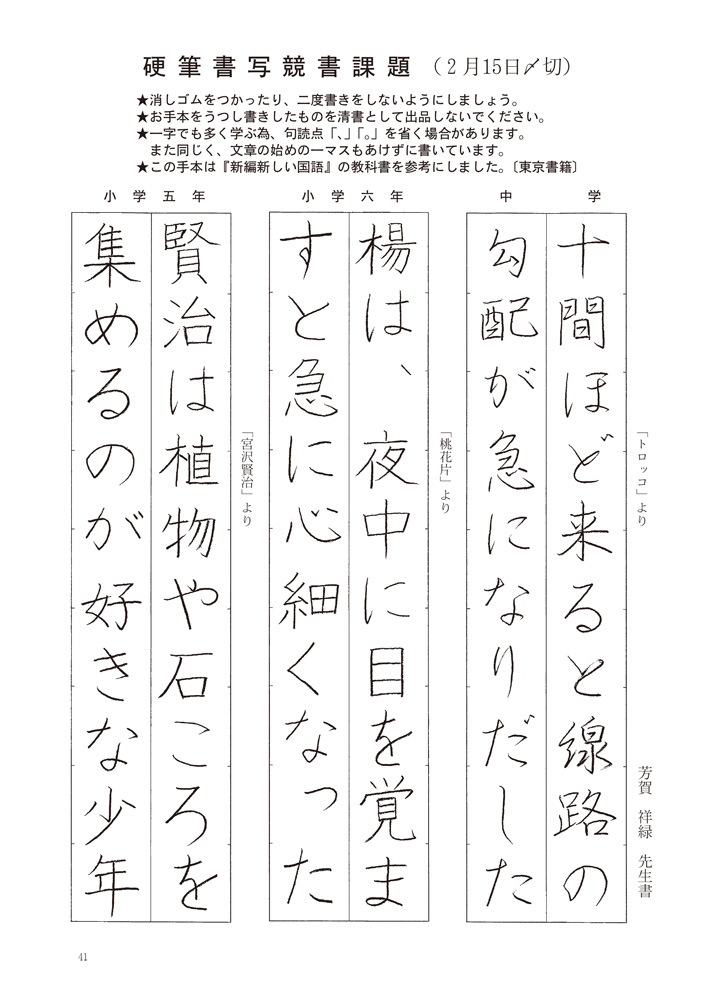 硬筆書写競書課題（２月15日〆切）
★消しゴムをつかったり、二度書きをしないようにしましょう。
★お手本をうつし書きしたものを清書として出品しないでください。
★一字でも多く学ぶ為、句読点「、」「。」を省く場合があります。
また同じく、文章の始めの一マスもあけずに書いています。
★この手本は『新編新しい国語』の教科書を参考にしました。〔東京書籍〕
中学
「トロッコ」より
芳賀 祥緑 先生書
十間ほど来ると線路の
勾配が急になりだした
小学六年
「桃花片」より
楊は、夜中に目を覚ま
すと急に心細くなった
小学五年
「宮沢賢治」より
賢治は植物や石ころを
集めるのが好きな少年
41